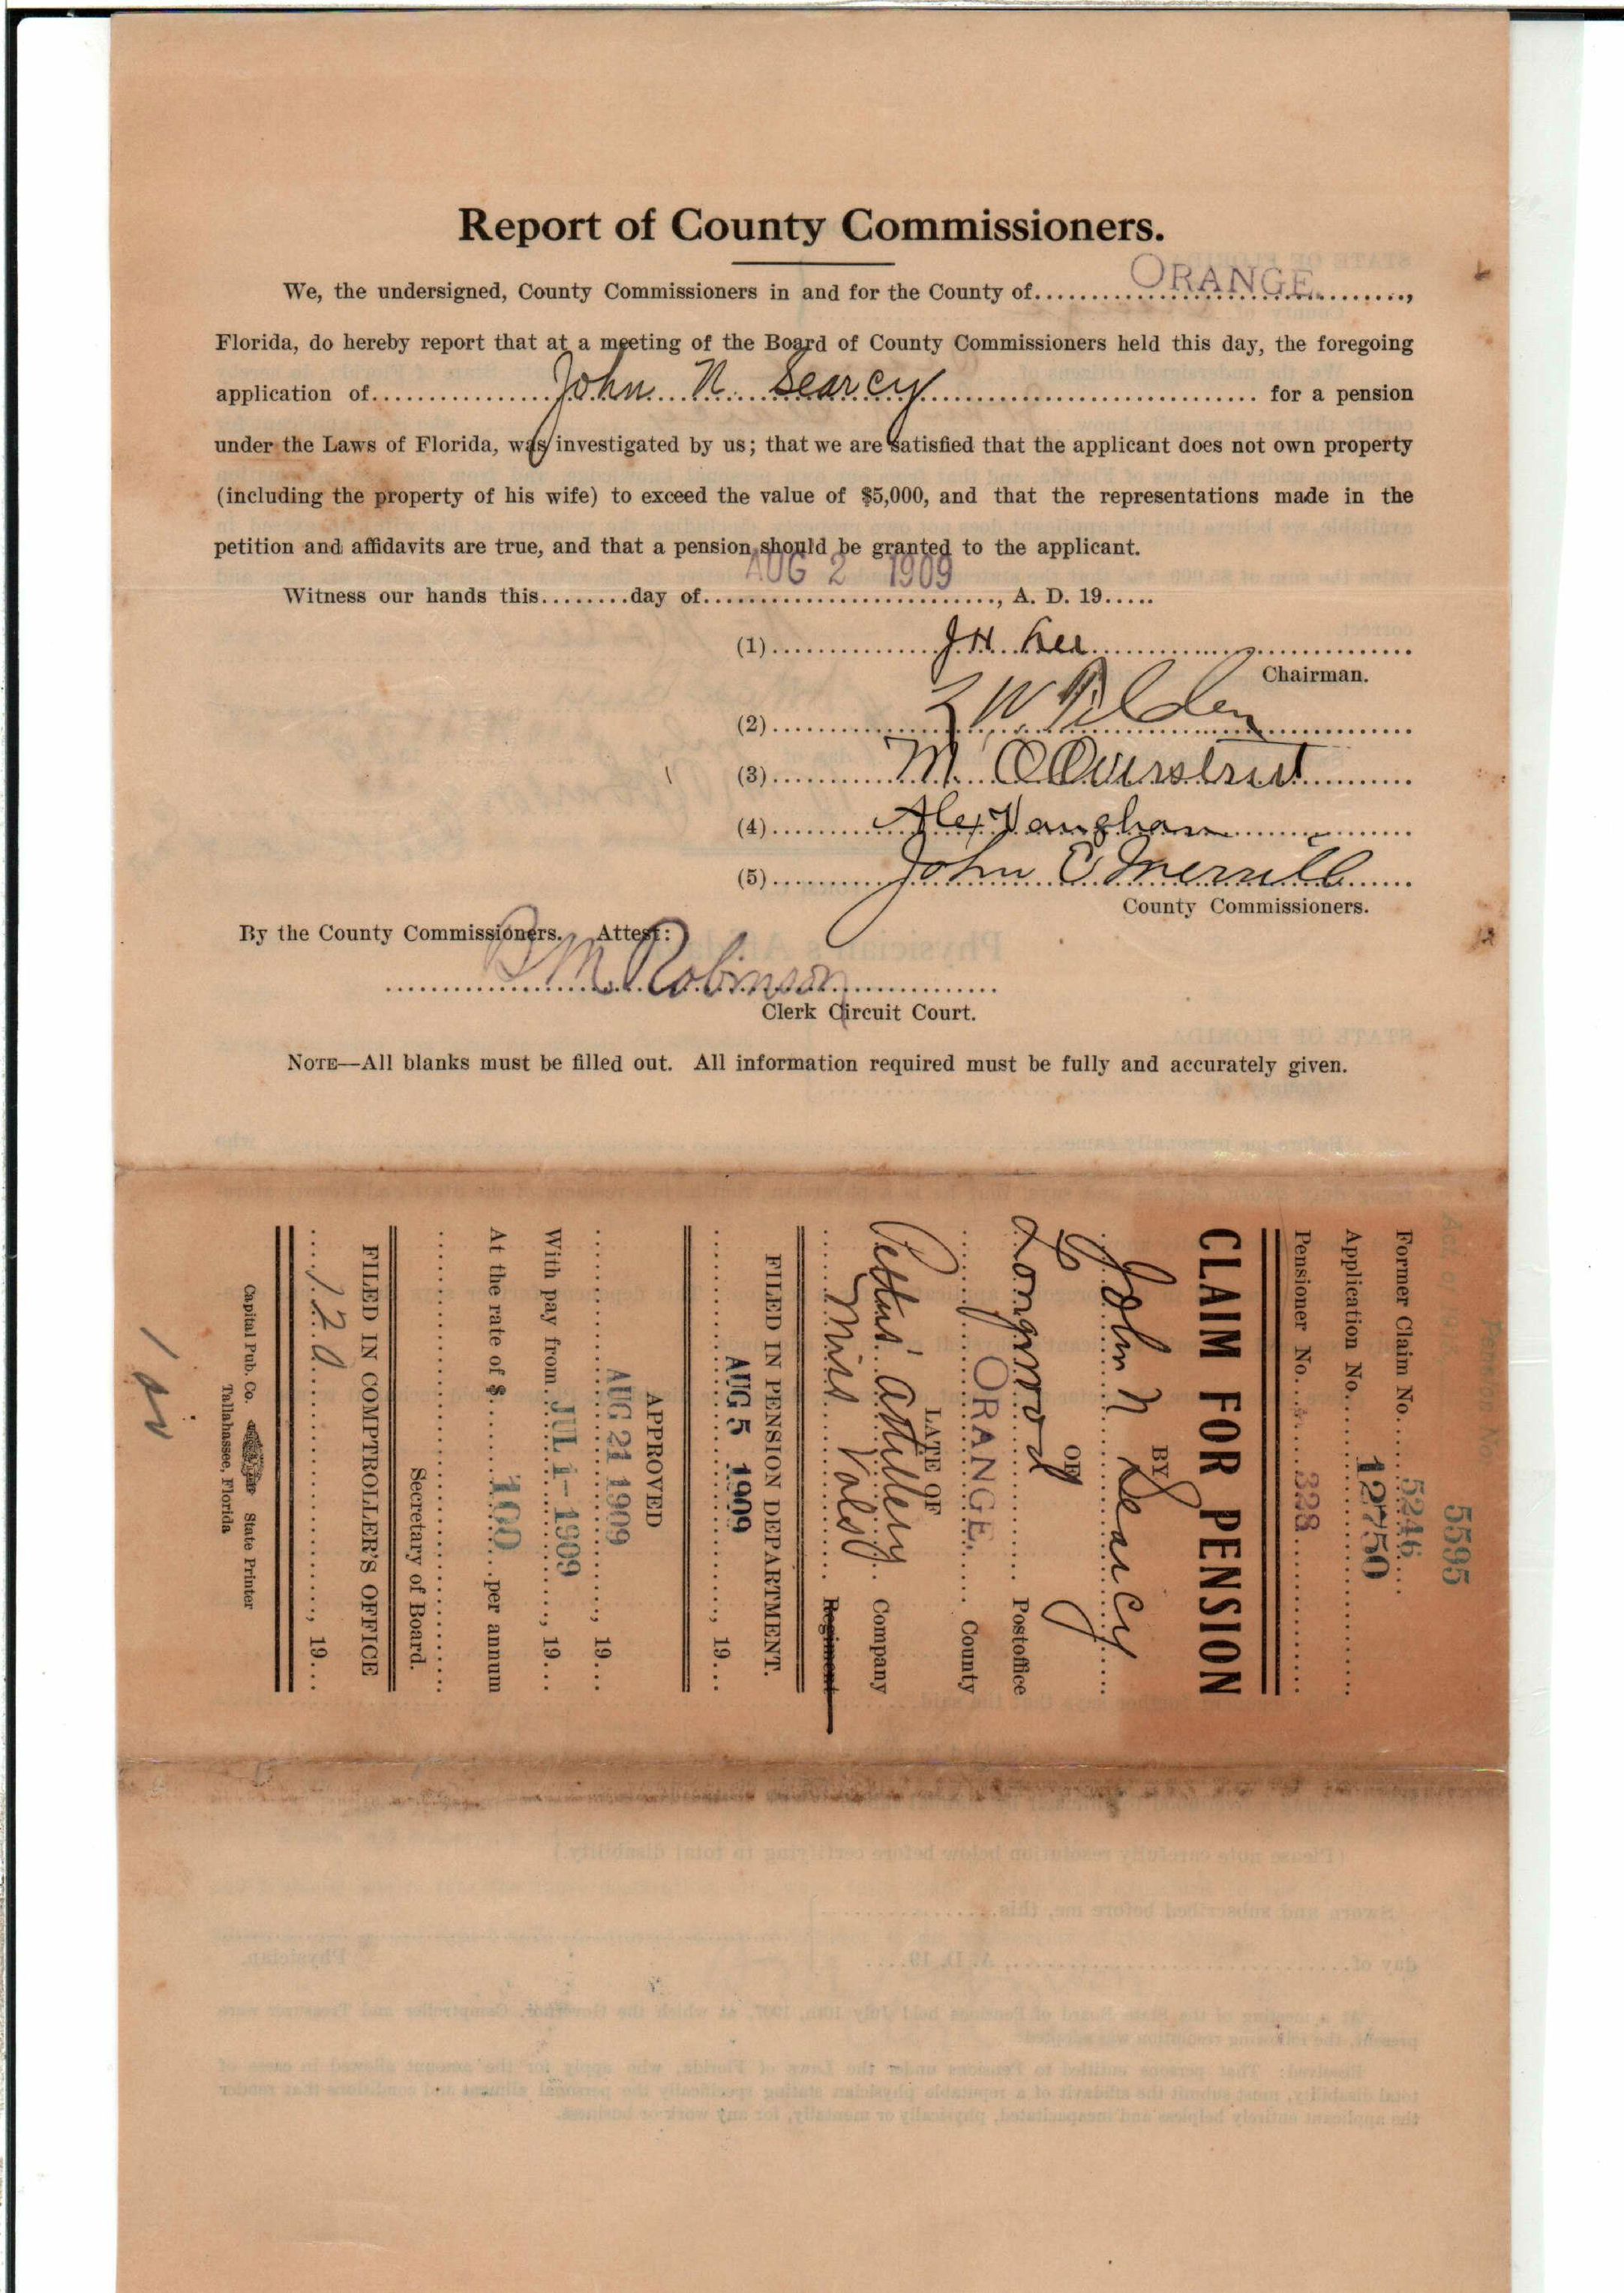 Report of County Commissioners.
We, the undersigned, County Commissioners in and for the County of ORANGE,
Florida, do hereby report that at a meeting of the Board of County Commissioners held this day, the foregoing
application of John N. Searcy for a pension
under the Laws of Florida, was investigated by us; that we are satisfied that the applicant does not own property
(including the property of his wife) to exceed the value of $5,000, and that the representations made in the
petition and affidavits are true, and that a pension should be granted to the applicant.
AUG 2 1909
Witness our hands this........day of............................, A. D. 19.....
(1) J. H. Lee
Chairman.
(2) L W Tilden
(3) M. O Overstreet
(4) Alex Vaughan
(5) John C Merrill
County Commissioners.
By the County Commissioners. Attest:
B M Robinson
Clerk Circuit Court.
NOTE—All blanks must be filled out. All information required must be fully and accurately given.
Pension No.
5595
Act of
Former Claim No. 5246
Application No. 12750
Pensioner No. 328
CLAIM FOR PENSION
BY
John N Searcy
OF
Longwood Postoffice
ORANGE. County
LATE OF
Pettus' Artillery Company
Miss Vols Regiment
FILED IN PENSION DEPARTMENT.
AUG 5 1909, 19...
APPROVED
AUG 21 1909, 19...
With pay from JUL 1-1909, 19...
At the rate of $ 100 per annum
Secretary of Board.
FILED IN COMPTROLLER'S OFFICE
120, 19...
Capital Pub. Co. State Printer
Tallahassee, Florida